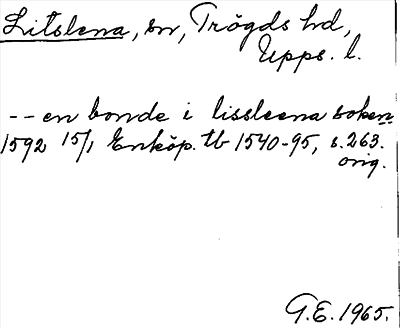 Litslena, sn, Trögds hd,
Upps. l.
-- en bonde i lissleena soken
1592 15/1 Enköp. tb 1540-95, s. 263.
orig.
G.E. 1965.